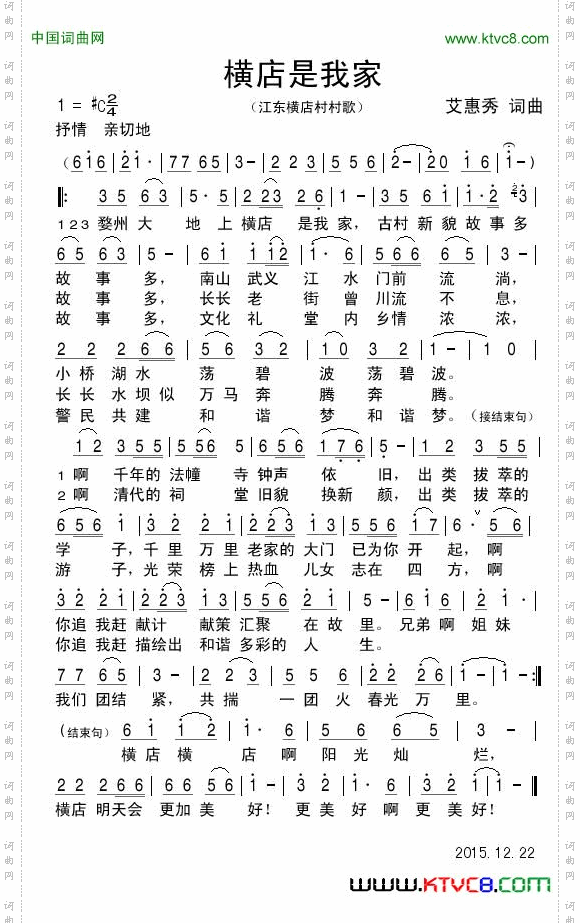 中国词曲网 www.ktvc8.com
横店是我家
1 = #C 2/4 （江东横店村村歌） 艾惠秀 词曲
抒情 亲切地
（616 | 21· | 77 65 | 3 - | 22 23 | 5 56 | 2 - | 2 20 16 | 1 - ）
‖: 35 63 | 5· 5 | 2 23 26 | 1 - | 35 61 | 1·2 23 |
123 婺州大 地上横店 是我家，古村新貌故事多
65 63 | 5 - | 61 112 | 1· 6 | 5 56 65 | 3 - |
故 事 多， 南山 武义 江 水 门前 流 淌，
故 事 多， 长长 老 街 曾 川流 不 息，
故 事 多， 文化 礼 堂 内 乡情 浓 浓，
2 2 2 66 | 56 32 | 10 32 | 1 - | 1 0 |
小 桥 湖水 荡 碧 波 荡 碧 波。
长 长 水 坝 似 万 马 奔 腾 奔 腾。
警 民 共 建 和 谐 梦 和 谐 梦。（接结束句）
12 355 | 556 5 | 656 176 | 5 - | 12 355 |
1啊 千年的 法幢 寺 钟声 依 旧，出 类 拔 萃的
2啊 清代的 祠 堂 旧貌 换新 颜，出 类 拔 萃的
656 1 | 32 22 | 223 13 | 556 17 | 6· 56 |
学 子，千 里 万 里 老家的 大门 已为你 开 起，啊
游 子，光 荣 榜 上 热血 儿女 志在 四 方，啊
32 21 | 223 13 | 2 216 | 5 - | 616 12 |
你追 我赶 献计 献策 汇聚 在 故 里。兄弟 啊 姐 妹
你追 我赶 描绘出 和谐 多彩的 人 生。
77 65 | 3 - | 2 223 | 55 6 | 22 26 | 1 - :‖
我们 团结 紧， 共 揣 一 团 火 春光 万 里。
（结束句）61 12 | 1· 6 | 55 65 | 3 - |
横 店 横 店 啊 阳 光 灿 烂，
22 266 | 66 56 | 1 - | 32 2 | 6· 1 | 32 2 | 1 - ‖
横店 明天会 更加 美 好！更 美 好 啊 更 美 好！
2015.12.22
WWW.KTVC8.COM